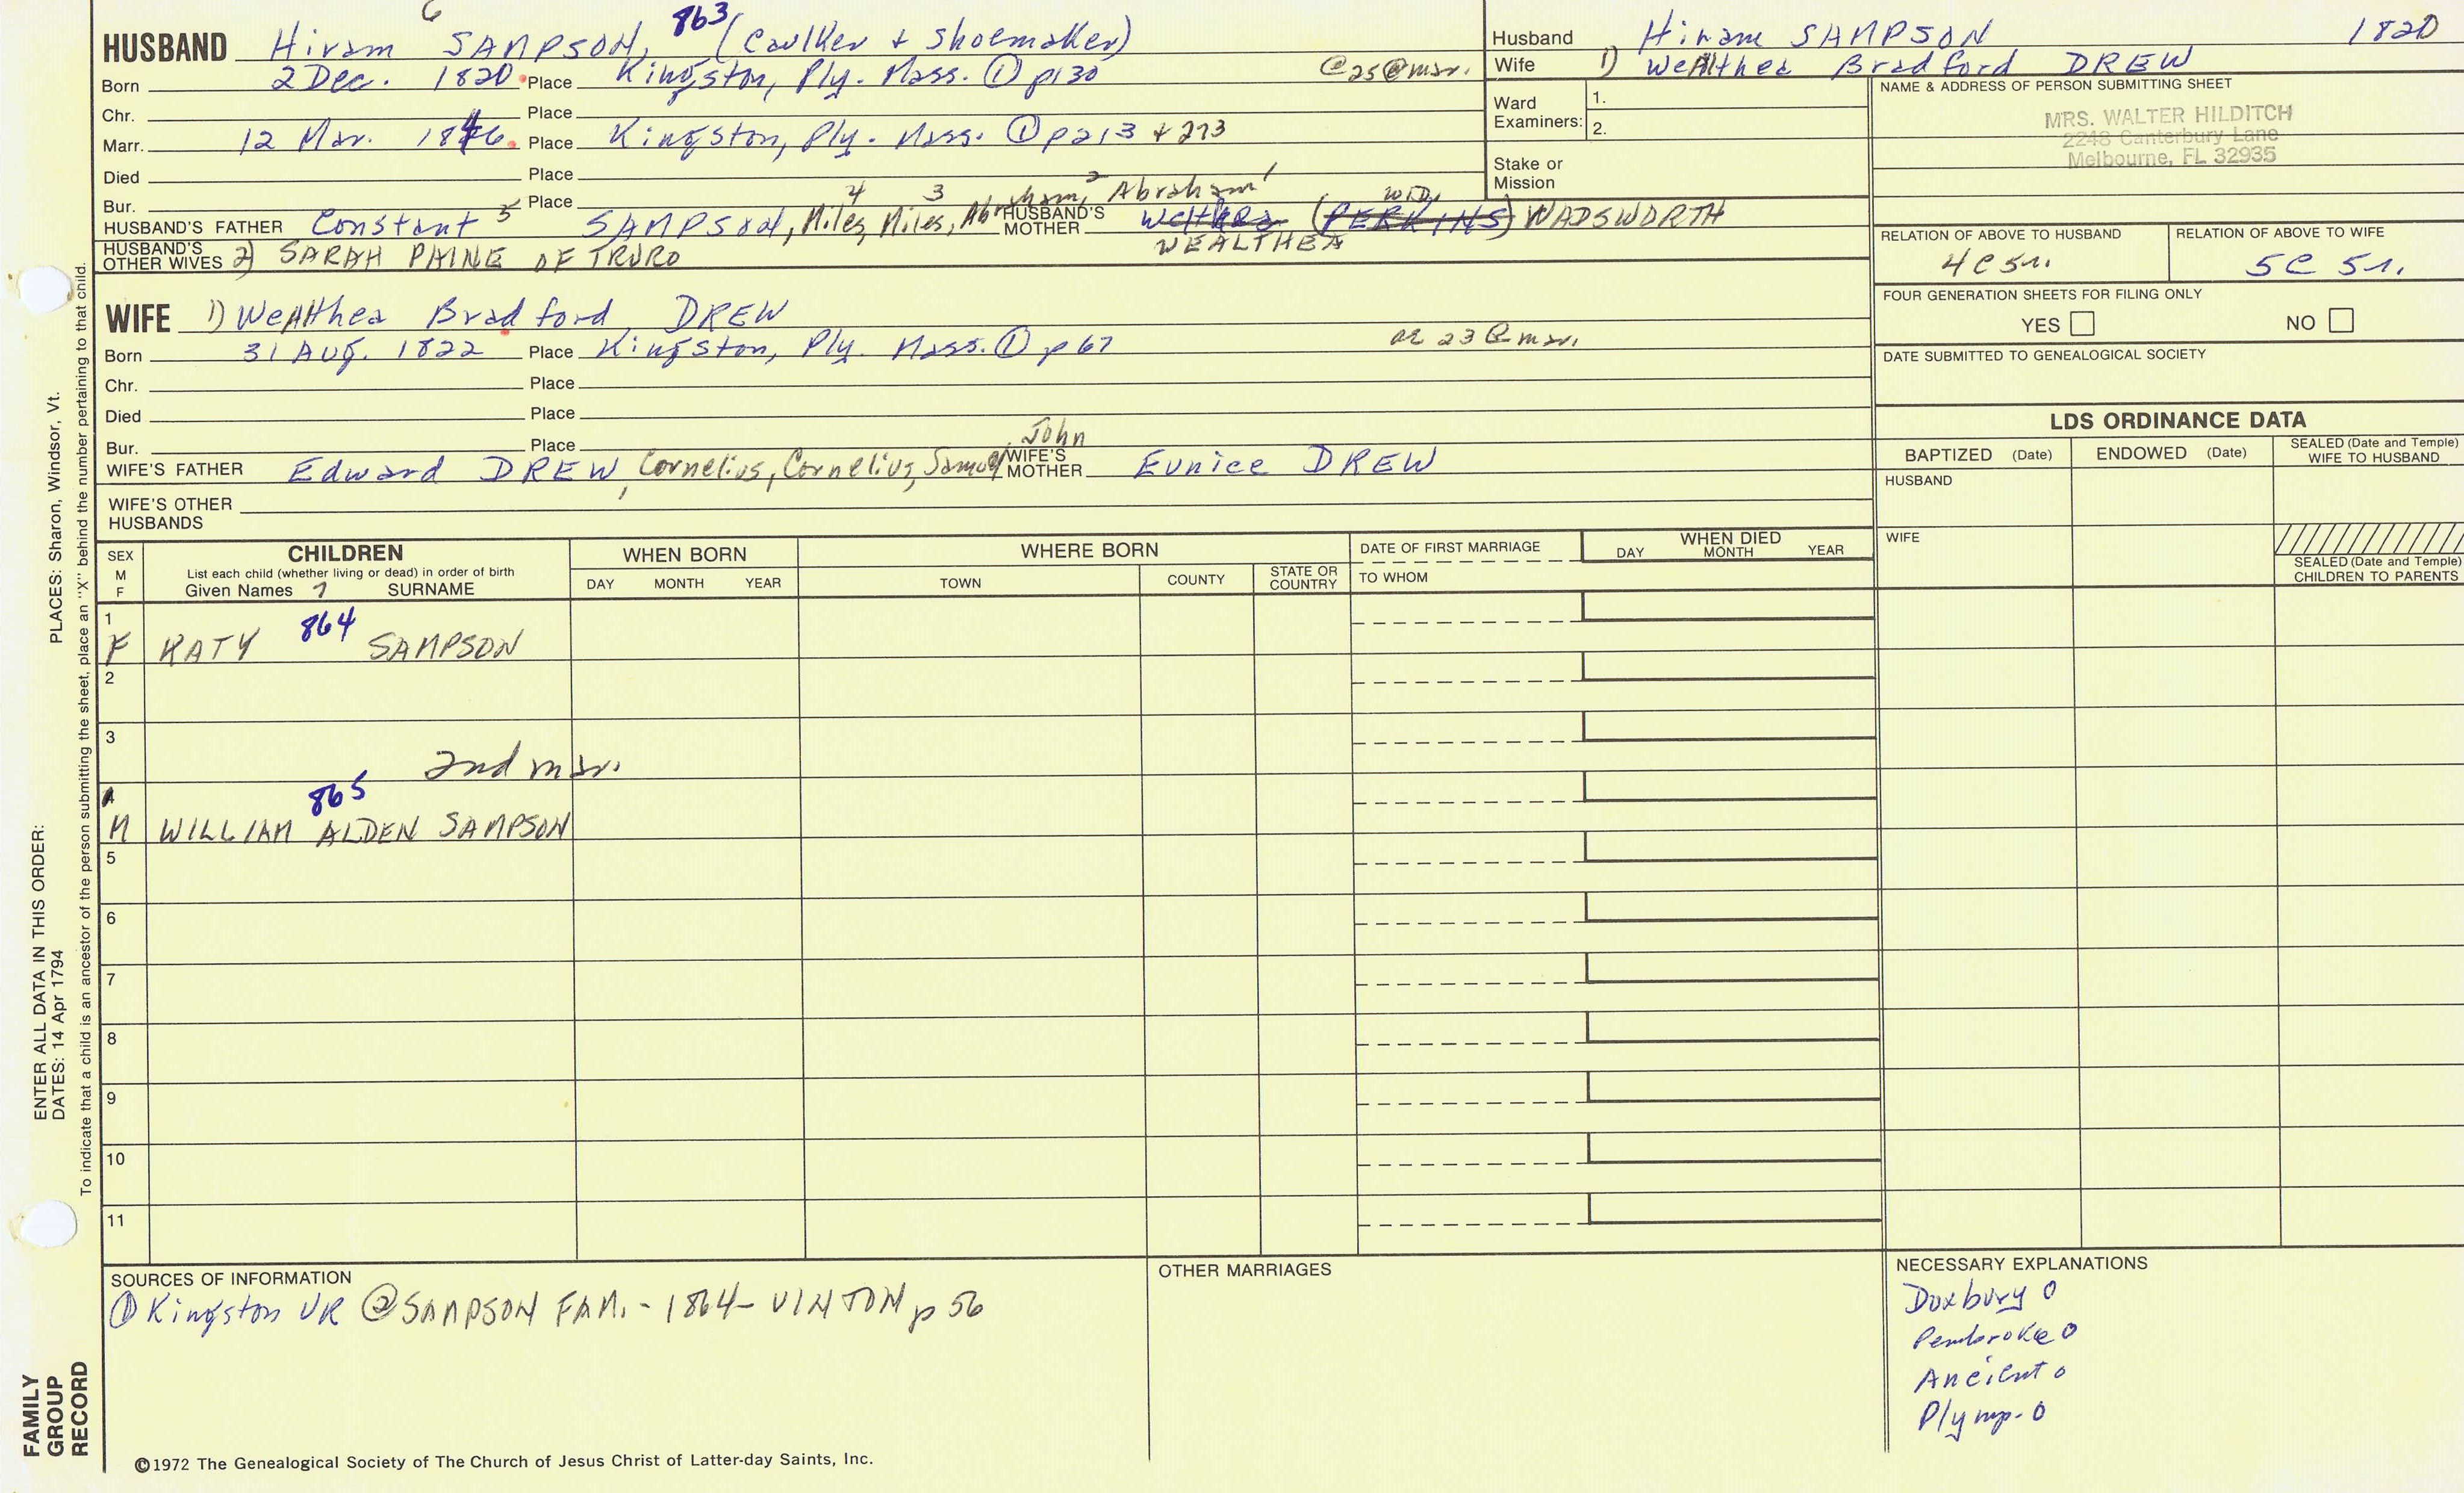 6
HUSBAND Hiram SAMPSON, 863 (Caulker + Shoemaker)
Born 2 Dec. 1820. Place Kingston, Ply. Mass. ① p130 @25@mar.
Chr. Place
Marr. 12 Mar. 1846. Place Kingston, Ply. Mass. ① p213 + 273
Died Place
Bur. Place
HUSBAND'S FATHER Constant 5 SAMPSON, Miles, 4 Miles, 3 Abraham, 2 Abraham 1
HUSBAND'S MOTHER Welthea (PERKINS) WID. WADSWORTH
WEALTHEA
HUSBAND'S OTHER WIVES 2) SARAH PAINE OF TRURO
WIFE 1) WeAlthea Bradford DREW
Born 31 AUG. 1822 Place Kingston, Ply. Mass. ① p67 ae 23 @ mar.
Chr. Place
Died Place
Bur. Place
WIFE'S FATHER Edward DREW, Cornelius, Cornelius, Samuel, John
WIFE'S MOTHER Eunice DREW
WIFE'S OTHER HUSBANDS
Husband Hiram SAMPSON 1820
Wife 1) WeAlthea Bradford DREW
Ward Examiners: 1.
2.
Stake or Mission
NAME & ADDRESS OF PERSON SUBMITTING SHEET
MRS. WALTER HILDITCH
2248 Canterbury Lane
Melbourne, FL 32935
RELATION OF ABOVE TO HUSBAND RELATION OF ABOVE TO WIFE
4C 5r. 5C 5r.
FOUR GENERATION SHEETS FOR FILING ONLY
YES NO
DATE SUBMITTED TO GENEALOGICAL SOCIETY
LDS ORDINANCE DATA
BAPTIZED (Date) ENDOWED (Date) SEALED (Date and Temple) WIFE TO HUSBAND
HUSBAND
WIFE
SEALED (Date and Temple) CHILDREN TO PARENTS
SEX M F
CHILDREN
List each child (whether living or dead) in order of birth
Given Names 7 SURNAME
WHEN BORN
DAY MONTH YEAR
WHERE BORN
TOWN COUNTY STATE OR COUNTRY
DATE OF FIRST MARRIAGE
TO WHOM
WHEN DIED
DAY MONTH YEAR
1
F KATY 864 SAMPSON
2
3
2nd mar.
4
865
M WILLIAM ALDEN SAMPSON
5
6
7
8
9
10
11
SOURCES OF INFORMATION
① Kingston VR ② SAMPSON FAM. - 1864 - VINTON p 56
OTHER MARRIAGES
NECESSARY EXPLANATIONS
Duxbury 0
Pembroke 0
Ancient 0
Plymp- 0
©1972 The Genealogical Society of The Church of Jesus Christ of Latter-day Saints, Inc.
FAMILY GROUP RECORD
ENTER ALL DATA IN THIS ORDER:
DATES: 14 Apr 1794
PLACES: Sharon, Windsor, Vt.
To indicate that a child is an ancestor of the person submitting the sheet, place an "X" behind the number pertaining to that child.